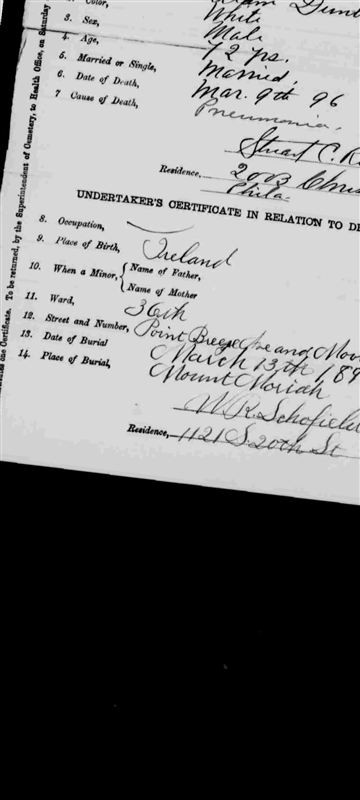 Color, White
3. Sex, Male
4. Age, 72 yrs.
5. Married or Single, Married,
6. Date of Death, Mar. 9th 96
7 Cause of Death, Pneumonia,
Stuart C. R
Residence, 2003 Ches
Phila.
UNDERTAKER'S CERTIFICATE IN RELATION TO DE
8. Occupation,
9. Place of Birth, Ireland
10. When a Minor, { Name of Father,
Name of Mother
11. Ward, 36th
12. Street and Number, Point Breeze Ave and Moo
13. Date of Burial March 13th 189
14. Place of Burial, Mount Moriah
W. R. Schofield
Residence, 1121 S. 20th St
To be returned, by the Superintendent of Cemetery, to Health Office, on Saturday
Certificate.